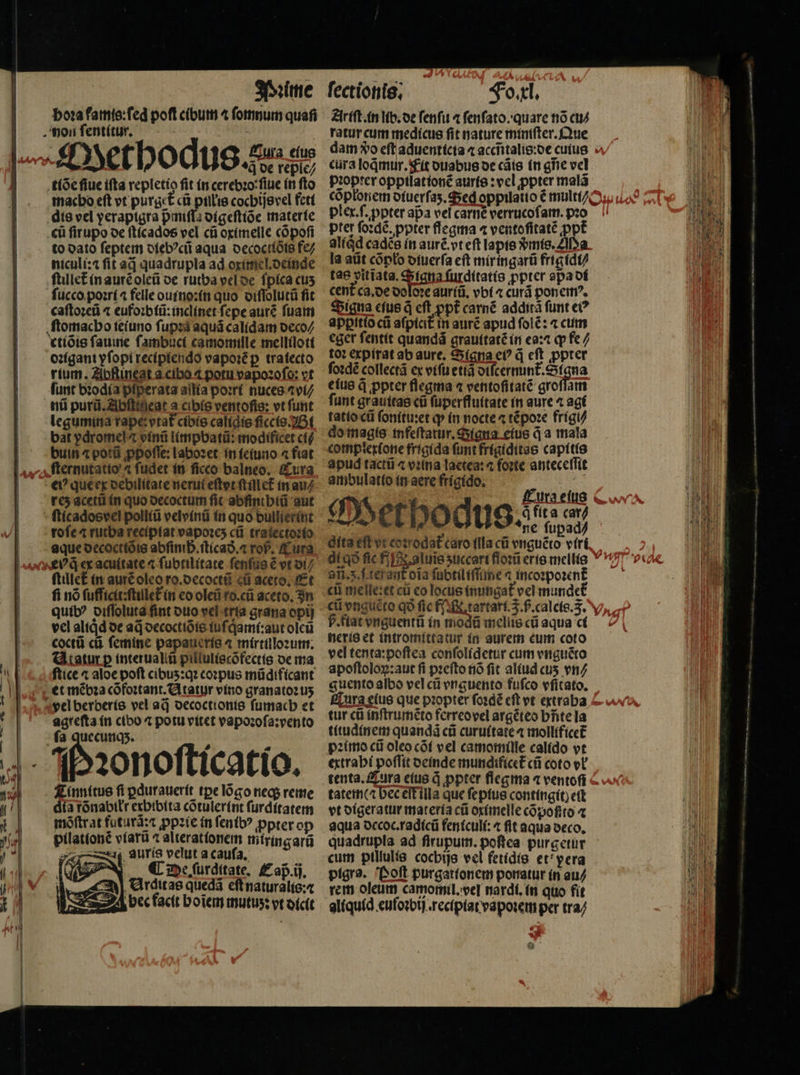 Prime
hora famis: sed post cibum ⁊ somnum quasi
non sentitur.
Methodus. Cura eius
q̄ de reple/
tiōe siue ista repletio fit in cerebro: siue in sto
macho est vt purget̄ cū pillis cochijs vel feti
dis vel yerapigra p̄missa digestiōe materie
cū sirupo de sticados vel cū oximelle cōposi
to dato septem dieb⁹ cū aqua decoctiōis fe/
niculi: ⁊ fit aq̄ quadrupla ad oximel. deinde
stillet̄ in aurē oleū de rutha vel de spica cuz
succo porri ⁊ felle ouino: in quo dissolutū sit
castoreū ⁊ euforbiū: inclinet sepe aurē suam
stomacho ieiuno supra aquā calidam deco/
ctiōis sauine sambuci camomille melliloti
origani ysopi recipiendo vaporē ꝑ traiecto
rium. Abstineat a cibo ⁊ potu vaporoso: vt
sunt brodia piperata allia porri nuces ⁊ vi/
nū purū. Abstineat a cibis ventosis: vt sunt
legumina rape: vtat̄ cibis calidis siccis. Bi
bat ydromel ⁊ vinū limpbatū: modificet ci/
bum ⁊ potū ꝓposse: laboret in ieiuno ⁊ fiat
sternutatio ⁊ sudet in sicco balneo. Cura
ei⁹ que ex debilitate nerui est vt stillet̄ in au/
rez acetū in quo decoctum sit absinthiū aut
sticados vel poliū vel vinū in quo bullierint
rose ⁊ rutha recipiat vaporez cū traiectorio
aque decoctiōis absinth̄. sticad. ⁊ ros̄. Cura
ei⁹ q̄ ex acuitate ⁊ subtilitate sensus ē vt di/
stillet̄ in aurē oleo ro. decoctū cū aceto. Et
si nō sufficit: stillet̄ in eo oleū ro. cū aceto. In
quib⁹ dissoluta sint duo vel tria grana opij
vel aliqd de aq̄ decoctiōis iusq̄ami: aut oleū
coctū cū semine papaueris ⁊ mirtillorum.
Utatur ꝑ interuallū pillulis cōfectis de ma
stice ⁊ aloe post cibuz: qz corpus mūdificant
et mēbra cōfortant. Utatur vino granatoruz
vel berberis vel aq̄ decoctionis sumach et
agresta in cibo ⁊ potu vitet vaporosa: vento
sa quecunqz.
Pronosticatio.
Tinnitus si ꝑdurauerit tpe lōgo necqz reme
dia rōnabilr exhibita cōtulerint surditatem
mōstrat futurā: ⁊ ꝓprie in senib⁹ ꝓpter op
pilationē viarū ⁊ alterationem miringarū
auris velut a causa.
¶ De surditate. Cap̄. ij.
Urditas quedā est naturalis: ⁊
hec facit hoīem mutuz: vt dicit
sectionis. Fo. xl.
Arist. in lib. de sensu ⁊ sensato. quare nō cu/
ratur cum medicus sit nature minister. Que
dam v̊o est aduenticia ⁊ accn̄talis: de cuius
cura loq̄mur. Fit duabus de cāis in gn̄e vel
propter oppilationē auris: vel ꝓpter malā
cōplonem diuersaz. Sed oppilatio ē multi/
plex. s. ꝓpter apa vel carnē verrucosam. pro
pter sordē. ꝓpter flegma ⁊ ventositatē ꝓpt̄
aliqd cadēs in aurē. vt est lapis v̄mis. Ma
la aūt cōplo diuersa est miringarū frigidi/
tas vitiata. Signa surditatis ꝓpter apa di
cent̄ ca. de dolore auriū, vbi ⁊ curā ponem⁹.
Signa eius q̄ est ꝓpt̄ carnē additā sunt ei⁹
appitio cū aspicit̄ in aurē apud solē: ⁊ cum
eger sentit quandā grauitatē in ea: ⁊ ꝙ fe/
tor expirat ab aure. Signa ei⁹ q̄ est ꝓpter
sordē collectā ex visu etiā discernunt̄. Signa
eius q̄ ꝓpter flegma ⁊ ventositatē grossam
sunt grauitas cū superfluitate in aure ⁊ agi
tatio cū sonitu: et ꝙ in nocte ⁊ tēpore frigi/
do magis infestatur. Signa eius q̄ a mala
complexione frigida sunt frigiditas capitis
apud tactū ⁊ vrina lactea: ⁊ forte antecessit
ambulatio in aere frigido.
Methodus. Cura eius
q̄ fit a car/
ne supad/
dita est vt corrodat̄ caro illa cū vnguēto viri
di qd̄ sic
cū melle: et cū eo locus inungat̄ vel mundet̄
neris et intromittatur in aurem cum coto
vel tenta: postea consolidetur cum vnguēto
apostolorz: aut si presto nō sit aliud cuz vn/
guento albo vel cū vnguento fusco vsitato.
Cura eius que propter sordē est vt extraha
tur cū instrumēto ferreo vel argēteo bn̄te la
titudinem quandā cū curuitate ⁊ mollificet̄
primo cū oleo cōi vel camomille calido vt
extrahi possit deinde mundificet̄ cū coto vl̄
tenta. Cura eius q̄ ꝓpter flegma ⁊ ventosi
tatem (⁊ hec est illa que sepius contingit) est
vt digeratur materia cū oximelle cōposito ⁊
aqua decoc. radicū feniculi: ⁊ fit aqua deco.
quadrupla ad sirupum. postea purgetur
cum pillulis cochijs vel fetidis et yera
pigra. Post purgationem ponatur in au/
rem oleum camomil. vel nardi. in quo sit
aliquid euforbij. recipiat vaporem per tra/